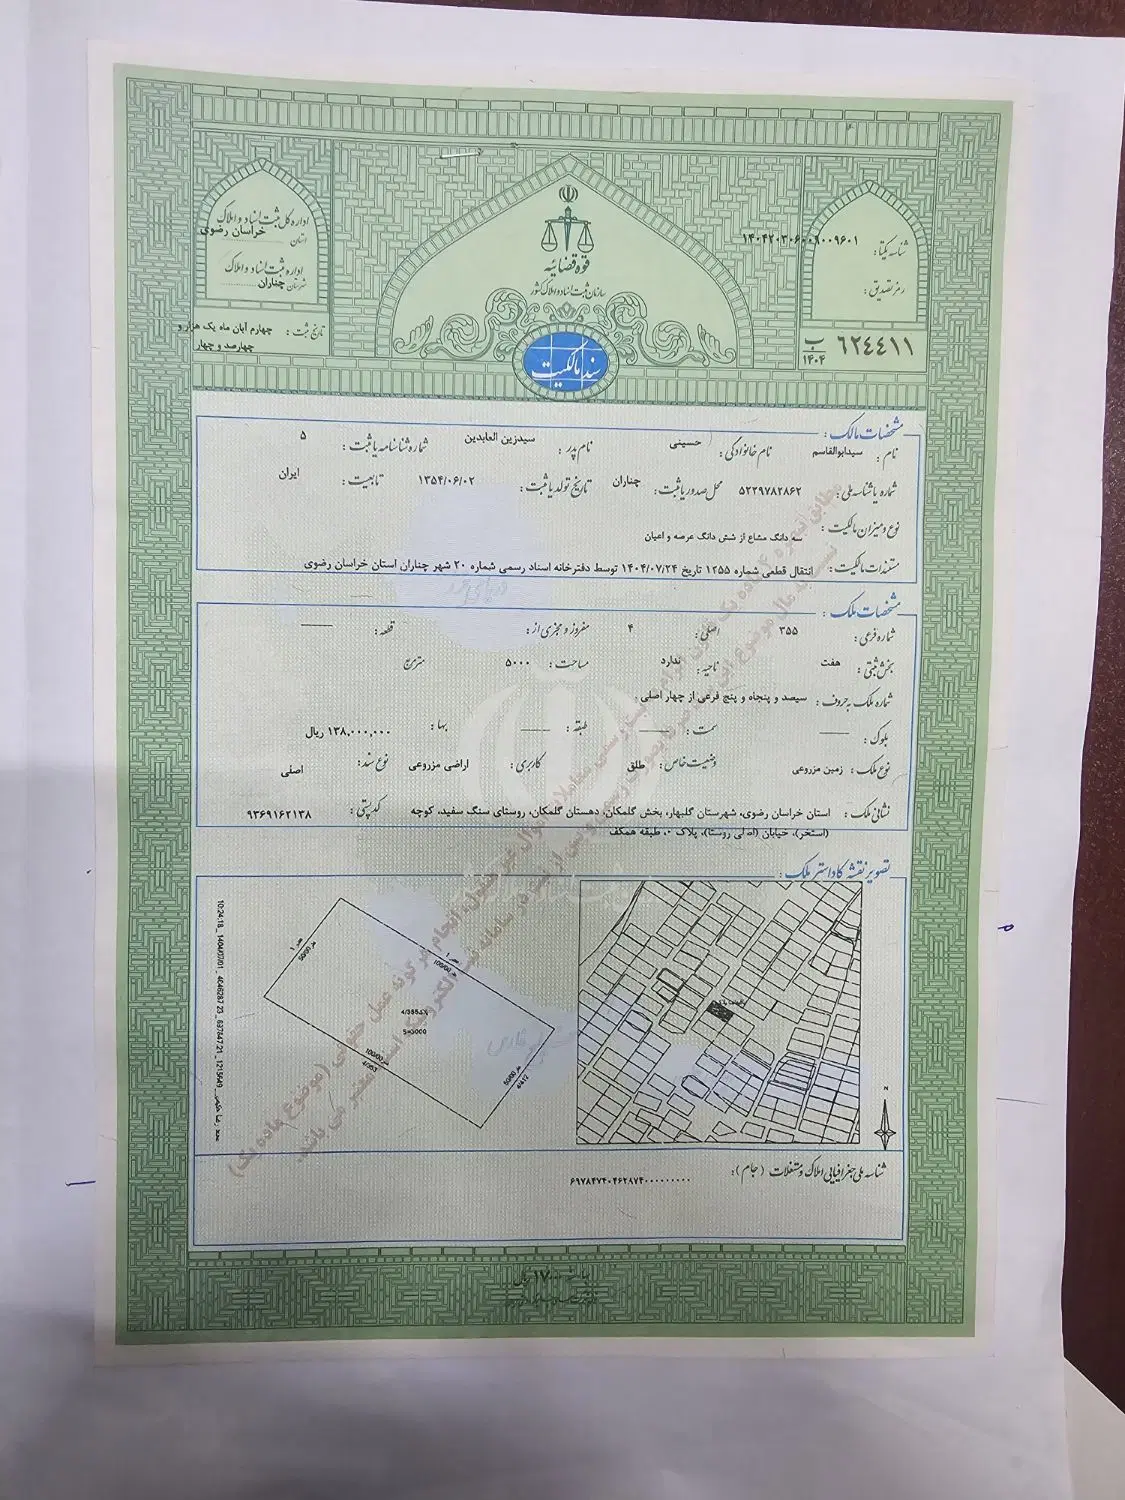 قوه قضائیه
سازمان ثبت اسناد و املاک کشور
سند مالکیت
شناسه یکتا: ۱۴۰۴۲۰۳۰۶۰۰۹۰۰۹۶۰۱
رمز تصدیق:
۶۲۴۴۱۱ ب ۱۴۰۴
اداره کل ثبت اسناد و املاک
استان خراسان رضوی
اداره ثبت اسناد و املاک
شهرستان چناران
تاریخ ثبت: چهارم آبان ماه یک هزار و
چهارصد و چهار
مشخصات مالک:
نام: سیدابوالقاسم نام خانوادگی: حسینی نام پدر: سیدزین العابدین شماره شناسنامه یا ثبت: ۵
شماره یا شناسه ملی: ۵۲۲۹۷۸۲۸۶۲ محل صدور یا ثبت: چناران تاریخ تولد یا ثبت: ۱۳۵۴/۰۶/۰۲ تابعیت: ایران
نوع و میزان مالکیت: سه دانگ مشاع از شش دانگ عرصه و اعیان
مستندات مالکیت: انتقال قطعی شماره ۱۲۵۵ تاریخ ۱۴۰۴/۰۷/۲۴ توسط دفترخانه اسناد رسمی شماره ۲۰ شهر چناران استان خراسان رضوی
مشخصات ملک:
شماره فرعی: ۳۵۵ اصلی: ۴ مفروز و مجزی از: قطعه:
بخش ثبتی: هفت ناحیه: ندارد مساحت: ۵۰۰۰ مترمربع
شماره ملک به حروف: سیصد و پنجاه و پنج فرعی از چهار اصلی
بلوک: سمت: طبقه: بها: ۱۳۸,۰۰۰,۰۰۰ ریال
نوع ملک: زمین مزروعی وضعیت خاص: طلق کاربری: اراضی مزروعی نوع سند: اصلی
نشانی ملک: استان خراسان رضوی، شهرستان گلبهار، بخش گلمکان، دهستان گلمکان، روستای سنگ سفید، کوچه کد پستی: ۹۳۶۹۱۶۲۱۳۸
(استخر)، خیابان (اصلی روستا)، پلاک ۰، طبقه همکف
تصویر نقشه کاداستر ملک:
4/355
S=5000
4/353
4/412
N
شناسه ملی جغرافیایی املاک و مستغلات (جام):